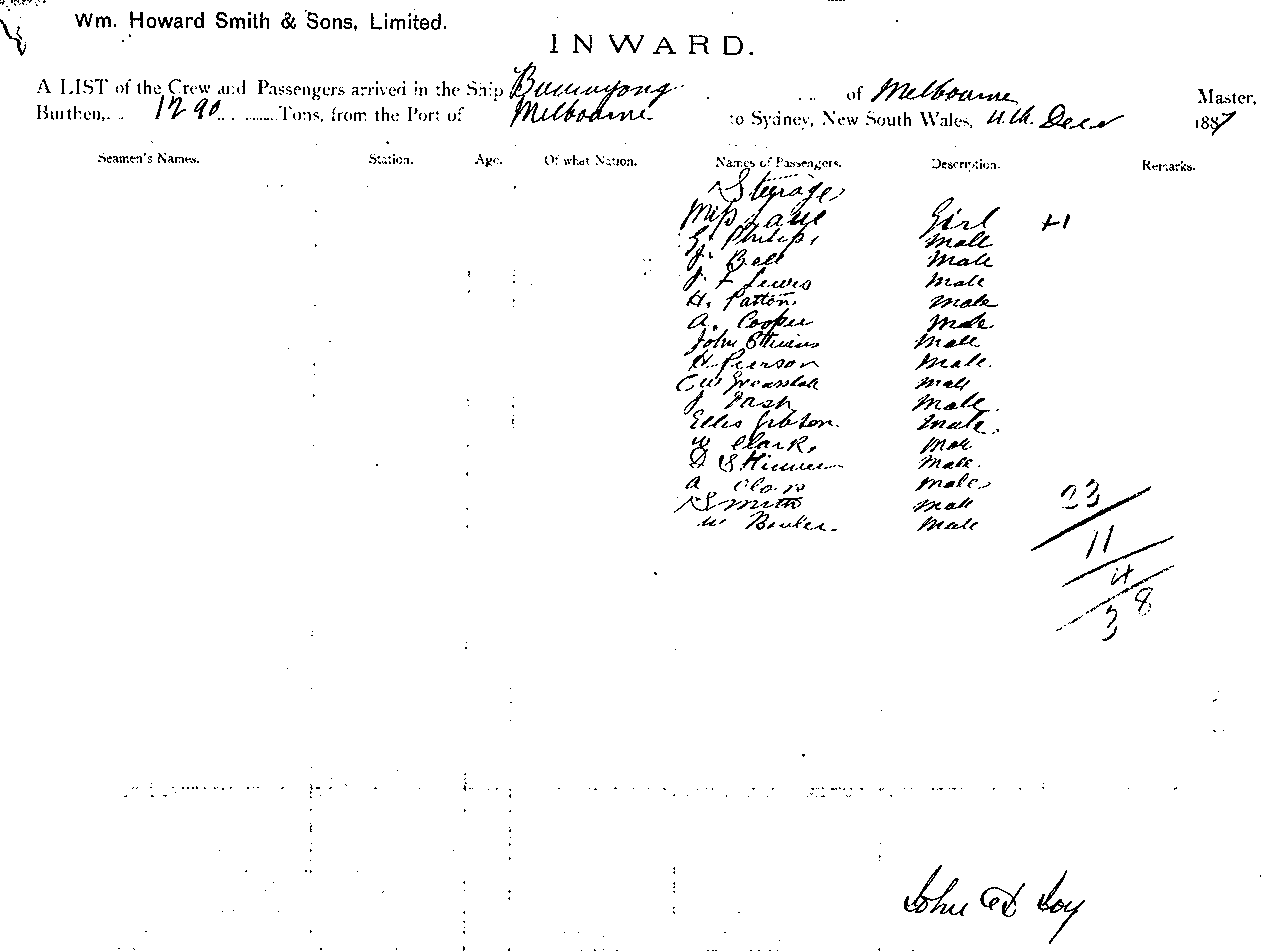 Wm. Howard Smith & Sons, Limited.
INWARD.
A LIST of the Crew and Passengers arrived in the Ship Buninyong of Melbourne Master,
Burthen, 1290 Tons, from the Port of Melbourne to Sydney, New South Wales, Decr 1887
Seamen's Names. Station. Age. Of what Nation. Names of Passengers. Description. Remarks.
Steerage
Miss Girl
G. Philips Male
J. Bell Male
J. F Lewis Male
H. Patton Male
A. Cooper Male
John Male
H. Peerson Male
C W Male
J. Male
Ellis Gibson Male
W Clark. Male
D Male
A Male
Smith Male
W Male
23
11
4
38
John